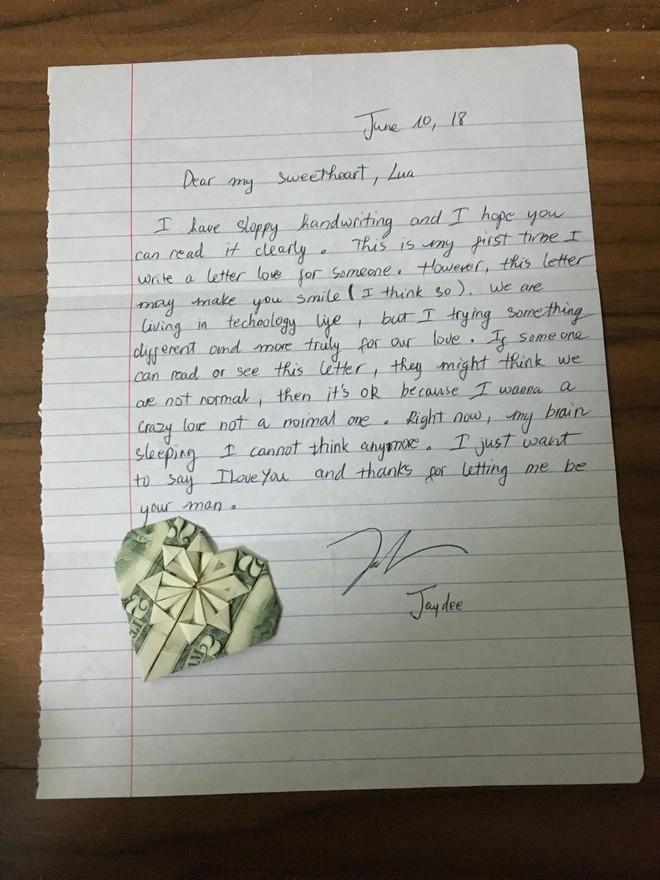 June 10, 18
Dear my sweetheart, Lua
I have sloppy handwriting and I hope you
can read it clearly. This is my first time I
write a letter love for someone. However, this letter
may make you smile (I think so). We are
living in techoology life, but I trying something
different and more truly for our love. If someone
can read or see this letter, they might think we
are not normal, then it's OK because I wanna a
crazy love not a noimal one. Right now, my brain
sleeping I cannot think anymore. I just want
to say I love You and thanks for letting me be
your man.
Jaydee
2
2
2